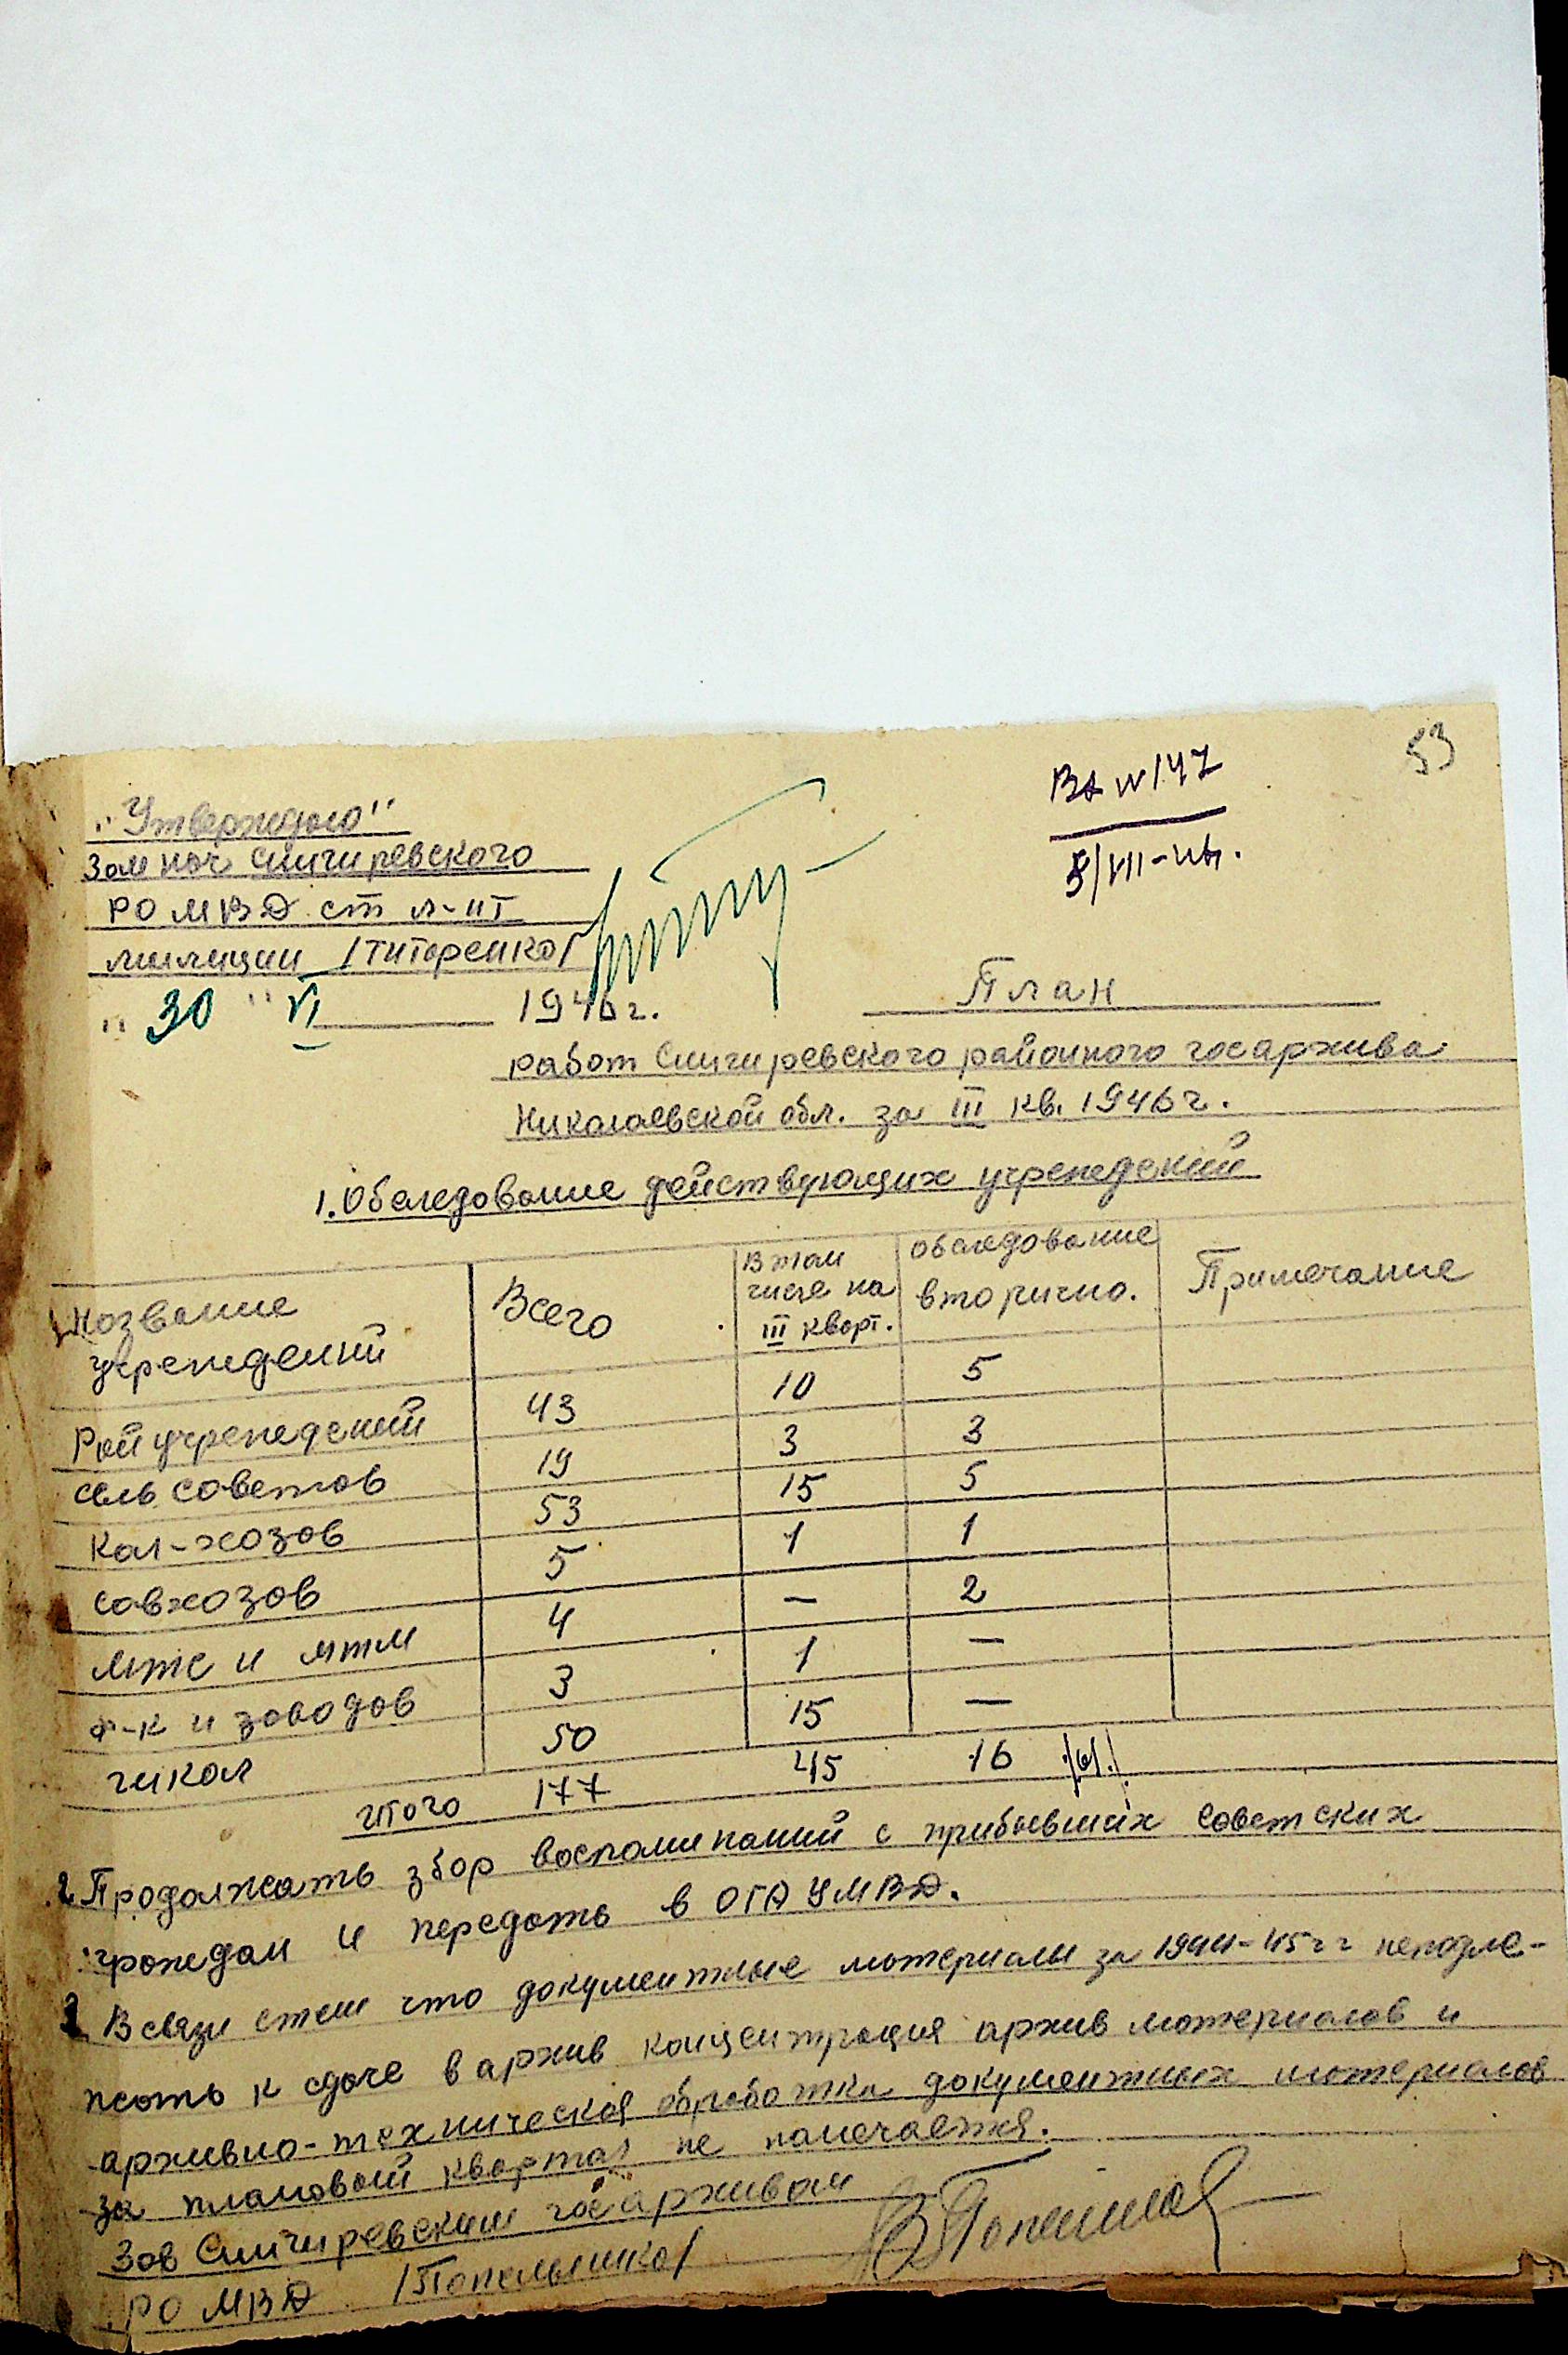 53
Вх N 147
5/VII-46.
"Утверждаю"
Зам нач Снигиревского
РО МВД ст л-нт
милиции /Титоренко/
"30" VI 1946 г.
План
работ Снигиревского районного госархива
Николаевской обл. за III кв. 1946 г.
1. Обследование действующих учреждений
Название учреждений | Всего | В том числе на III кварт. | обследование вторично. | Примечание
Райучреждений 43 10 5
сельсоветов 19 3 3
Кол-хозов 53 15 5
совхозов 5 1 1
мтс и мтм 4 — 2
ф-к и заводов 3 1 —
школ 50 15 —
итого 177 45 16
2 Продолжать збор воспоминаний с прибывших советских
граждан и передать в ОГА УМВД.
3 В связи стем что документные материалы за 1944-45 г г неподле-
жать к сдаче в архив концентрация архив материалов и
архивно-техническая обработка документных материалов
за плановый квартал не намечается.
Зав Снигиревским госархивом
РО МВД /Попельнико/